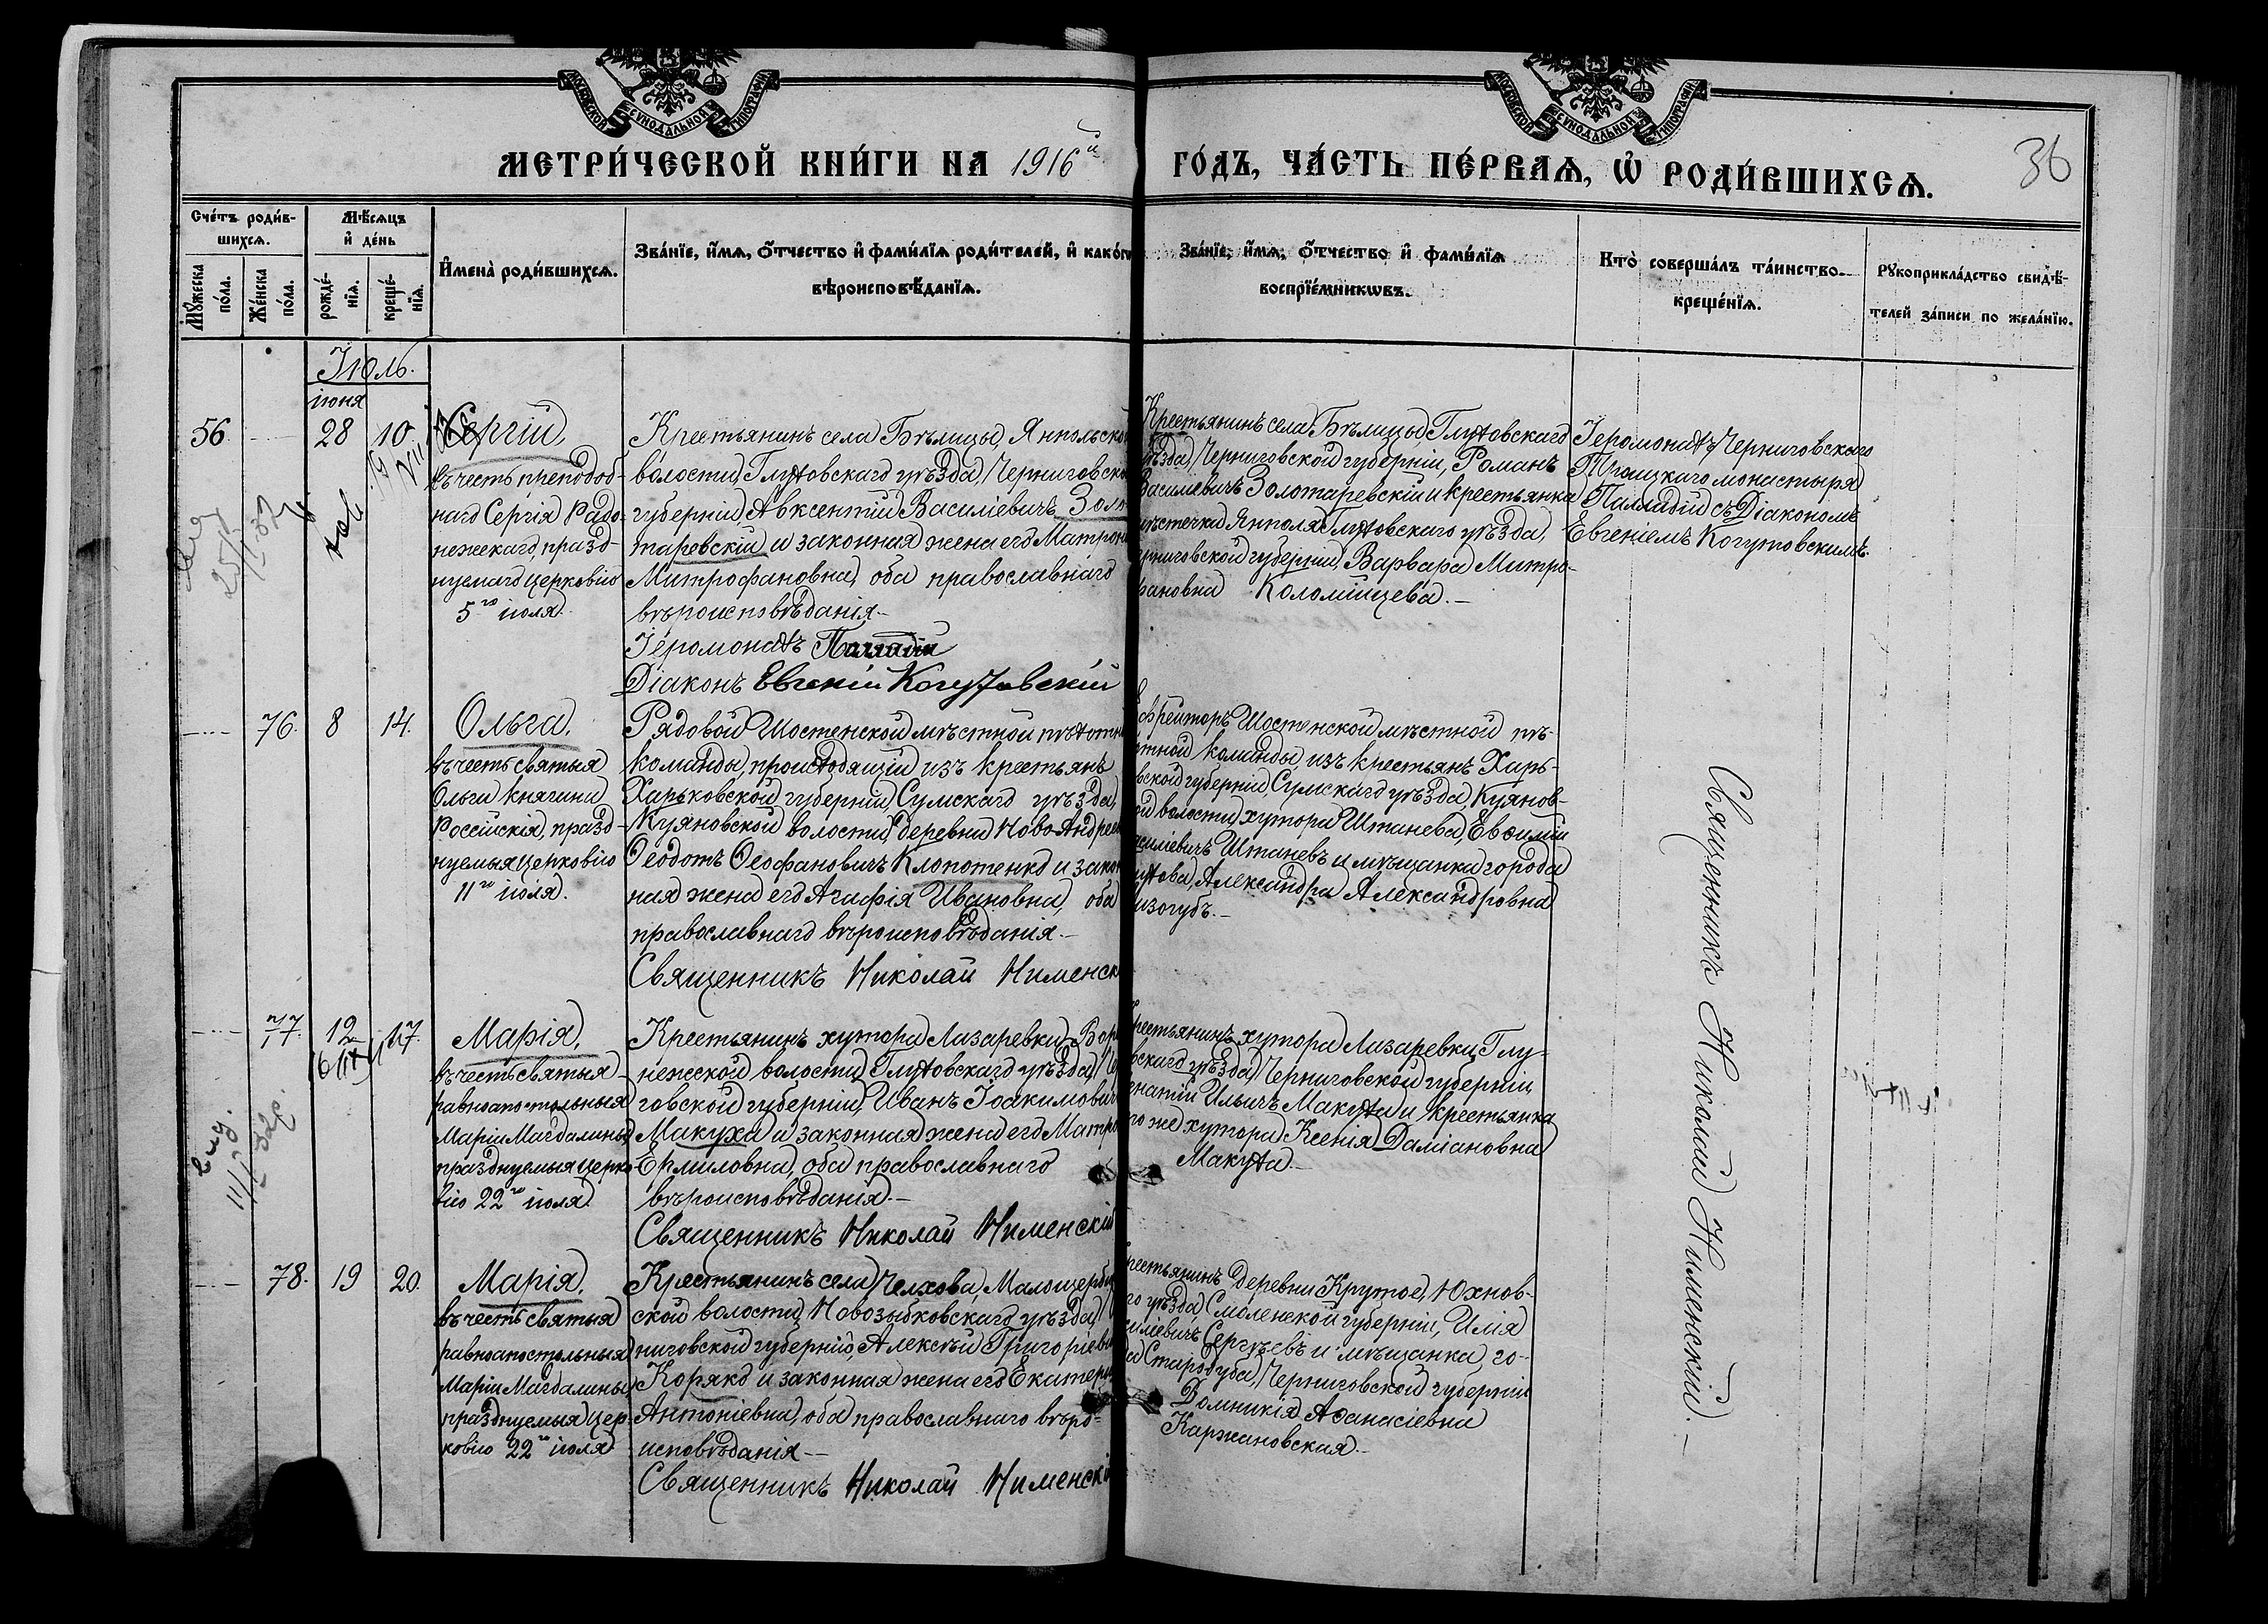 МОСКОВСКОЙ СѴНОДАЛЬНОЙ ТИПОГРАФІИ
МОСКОВСКОЙ СѴНОДАЛЬНОЙ ТИПОГРАФІИ
МЕТРИ́ЧЕСКОЙ КНИ́ГИ НА 1916й
ГО́ДЪ, ЧА́СТЬ ПЕ́РВАѦ, Ѡ҆ РОДИ́ВШИХСѦ.
36
Сче́тъ роди́в-
шихсѧ.
Мѣ́сѧцъ
и҆ де́нь
Мꙋ́жеска
по́ла.
Же́нска
по́ла.
рожде́-
нїѧ.
креще́-
нїѧ.
И҆мена̀ роди́вшихсѧ.
Зва́нїе, и҆́мѧ, ѻ҆́тчество и҆ фами́лїѧ роди́телей, и҆ како́гѡ
вѣроисповѣ́данїѧ.
Зва́нїе, и҆́мѧ, ѻ҆́тчество и҆ фами́лїѧ
воспрїе́мникѡвъ.
Кто̀ соверша́лъ та́инство
креще́нїѧ.
Рꙋкоприкла́дство свидѣ́-
телей за́писи по жела́нїю.
Іюль.
іюня
56.
28
10
Сергій,
въ честь преподоб-
наго Сергія Радо-
нежскаго, празд-
нуемаго церковію
5го іюля.
Крестьянинъ села Бѣлицы, Янпольской
волости, Глуховскаго уѣзда, Черниговской
губерніи, Авксентій Василіевичъ Золо-
таревскій и законная жена его Матрона
Митрофановна, оба православнаго
вѣроисповѣданія.
Іеромонахъ Палладій
Діаконъ Евгеній Когутовскій
Крестьянинъ села Бѣлицы, Глуховскаго
уѣзда, Черниговской губерніи, Романъ
Василіевичъ Золотаревскій и крестьянка
мѣстечка Янполя, Глуховскаго уѣзда,
Черниговской губерніи, Варвара Митро-
фановна Коломійцева.
Іеромонахъ Черниговскаго
Троицкаго монастыря
Палладій съ Діакономъ
Евгеніемъ Когутовскимъ.
76.
8
14.
Ольга,
въ честь святыя
Ольги княгини
Россійскія, празд-
нуемыя церковію
11го іюля.
Рядовой Шостенской мѣстной пѣхотной
команды, происходящій изъ крестьянъ
Харьковской губерніи, Сумскаго уѣзда,
Куяновской волости, деревни Ново-Андреевки
Ѳеодотъ Ѳеофановичъ Клопотенко и закон-
ная жена его Агафія Ивановна, оба
православнаго вѣроисповѣданія.
Священникъ Николай Нименскій
Ефрейторъ Шостенской мѣстной пѣ-
хотной команды, изъ крестьянъ Харь-
ковской губерніи, Сумскаго уѣзда, Куянов-
ской волости, хутора Штанева, Евѳимій
Василіевичъ Штаневъ и мѣщанка города
Глухова, Александра Александровна
Лизогубъ.
77.
12
17.
Марія,
въ честь святыя
равноапостольныя
Маріи Магдалины,
празднуемыя церко-
вію 22го іюля.
Крестьянинъ хутора Лазаревки, Воро-
нежской волости, Глуховскаго уѣзда, Черни-
говской губерніи, Иванъ Іоакимовичъ
Макуха и законная жена его Матрона
Ермиловна, оба православнаго
вѣроисповѣданія.
Священникъ Николай Нименскій
Крестьянинъ хутора Лазаревки, Глу-
ховскаго уѣзда, Черниговской губерніи,
Игнатій Ильичъ Макуха и крестьянка
того же хутора Ксенія Даміановна
Макуха.
78.
19
20.
Марія,
въ честь святыя
равноапостольныя
Маріи Магдалины,
празднуемыя цер-
ковію 22го іюля.
Крестьянинъ села Челхова, Малощерби-
ской волости, Новозыбковскаго уѣзда, Чер-
ниговской губерніи, Алексѣй Григоріевичъ
Коряко и законная жена его Екатерина
Антоніевна, оба православнаго вѣро-
исповѣданія.
Священникъ Николай Нименскій
Крестьянинъ деревни Крутое, Юхнов-
скаго уѣзда, Смоленской губерніи, Илія
Василіевичъ Сергѣевъ и мѣщанка го-
рода Стародуба, Черниговской губерніи
Домникія Аѳанасіевна
Каржановская.
Священникъ Николай Нименскій.